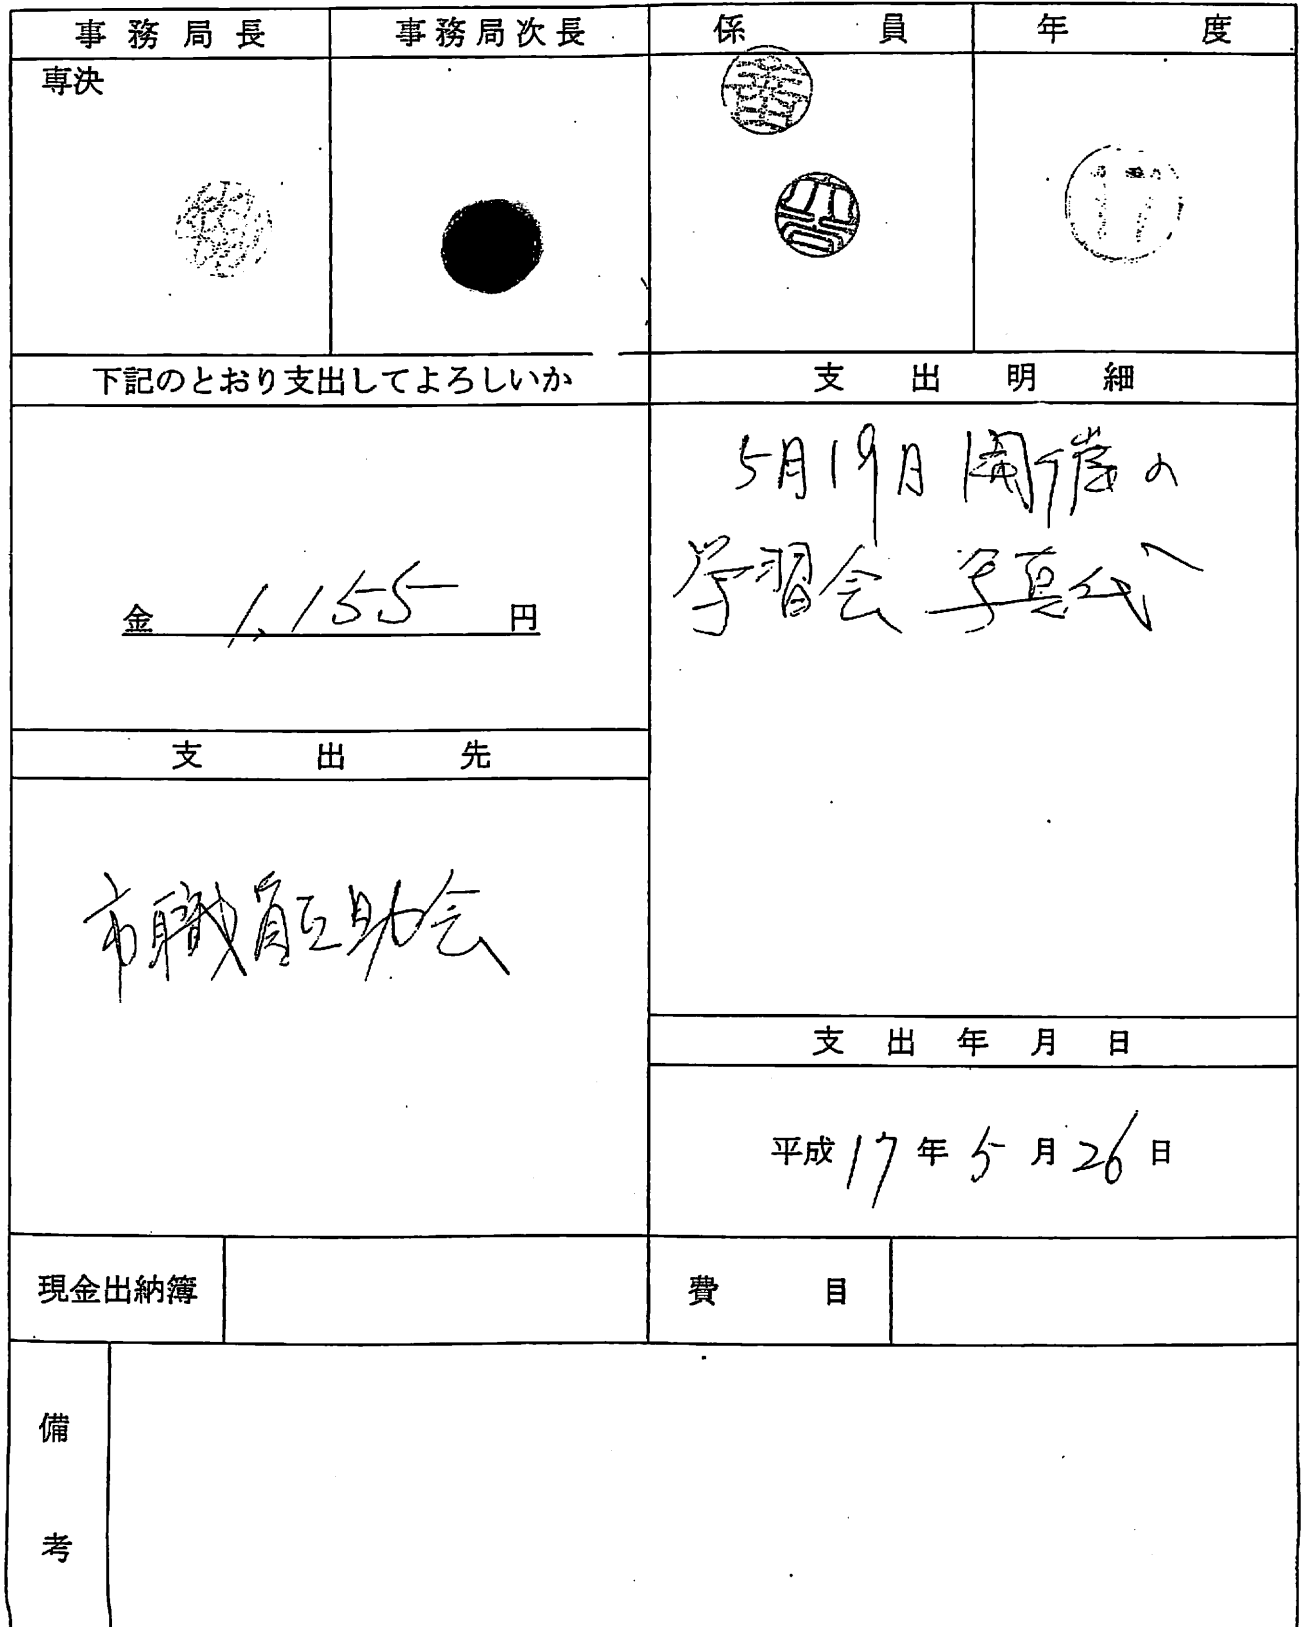 事務局長 事務局次長 係員 年度
専決
17
下記のとおり支出してよろしいか 支出明細
5月19日 開催の
学習会 写真代へ
金 1,155 円
支出先
市職員互助会
支出年月日
平成 17 年 5 月 26 日
現金出納簿 費目
備考